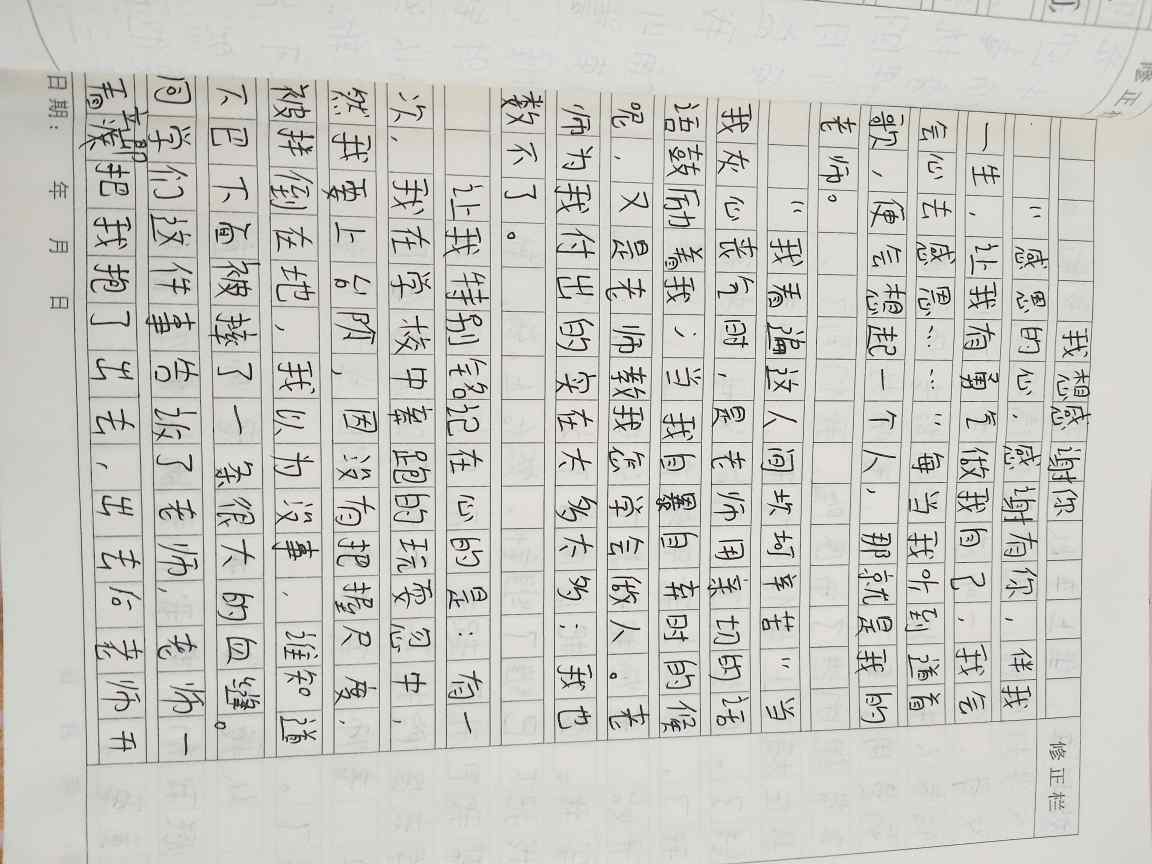 我想感谢你
“感恩的心,感谢有你,伴我
一生,让我有勇气做我自己,我会
会心去感恩……”每当我听到这首
歌,便会想起一个人,那就是我的
老师。
“我看遍这人间坎坷辛苦”当
我灰心丧气时,是老师用亲切的话
语鼓励着我;当我自暴自弃时的候
呢,又是老师教我怎学会做人。老
师为我付出的实在太多太多;我也
数不了。
让我特别铭记在心的是:有一
次,我在学校中奔跑的玩耍忽中,
然我要上台阶,因没有把握尺度,
被拌倒在地,我以为没事,谁知道
下巴下面被摔了一条很大的血缝。
同学们这件事告诉了老师,老师一
看,立即把我抱了出去,出去后老师开
修正栏
日期: 年 月 日
修正